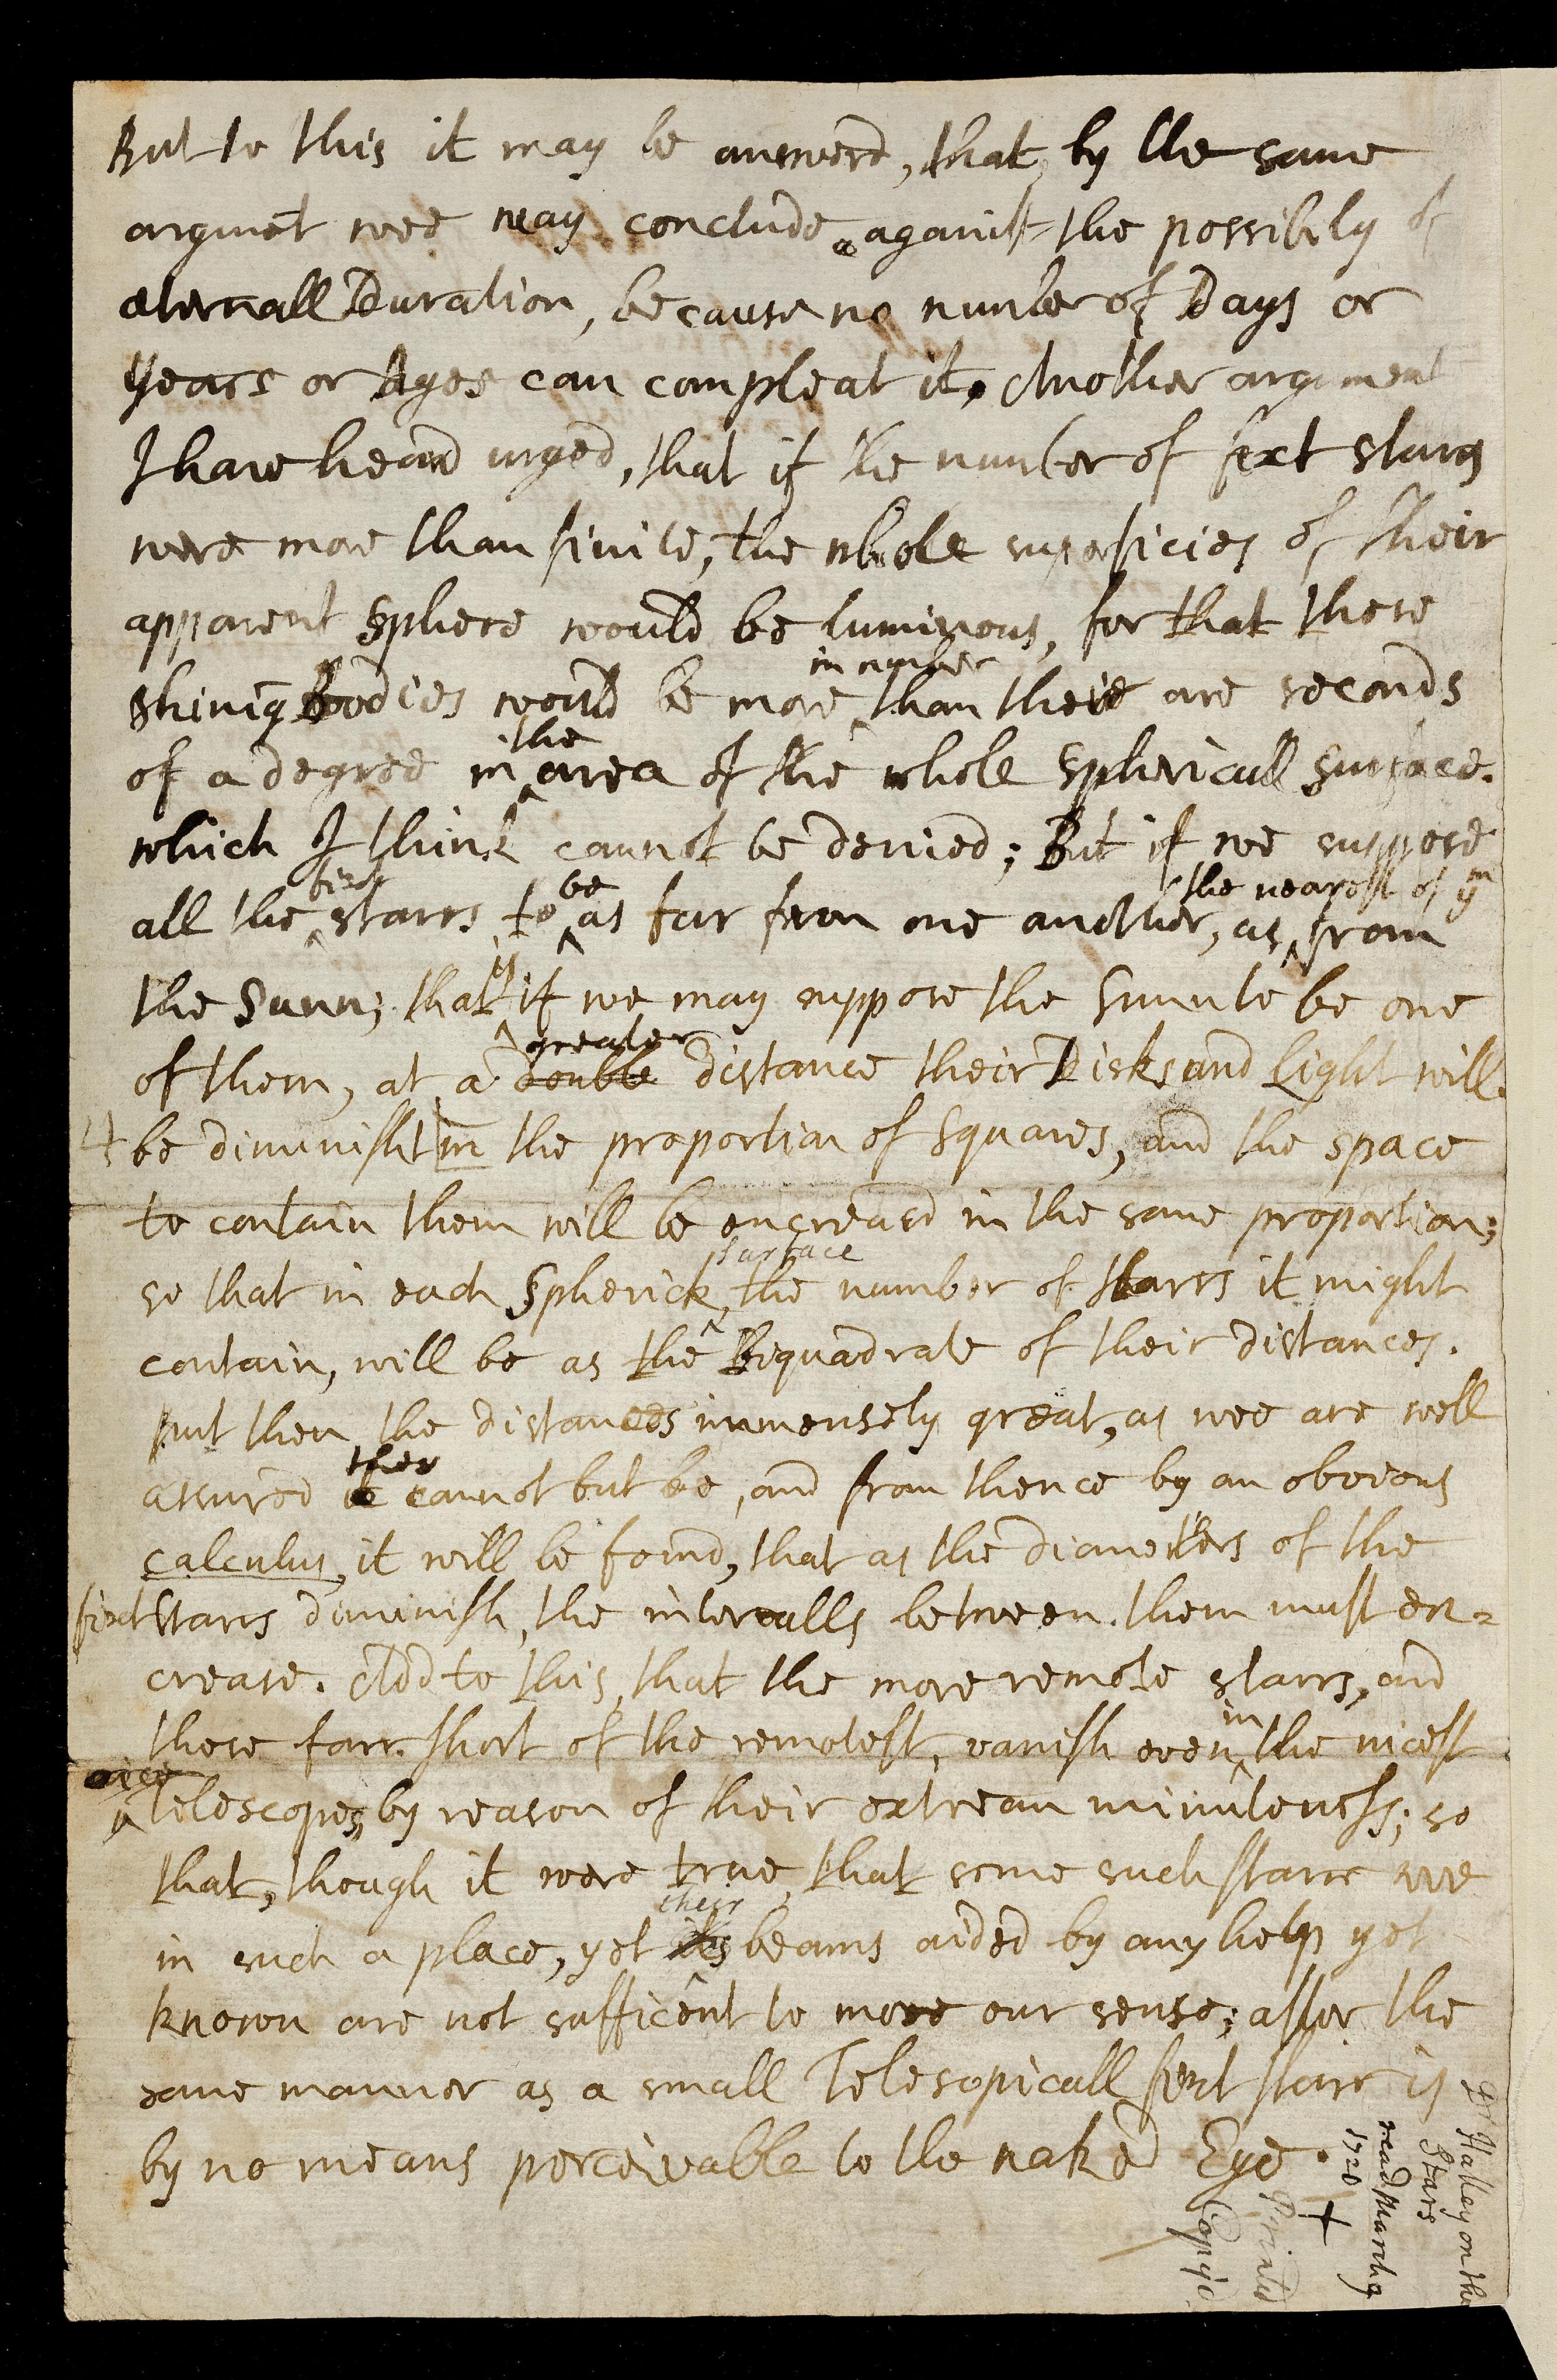 But to this it may be answerd, that by the same
argumēt wee may conclude against the possibily of
æternall Duration, because no number of Days or
years or Ages can compleat it. Another argument
I have heard urged, that if the number of fixt stars
were more than finite, the whole superficies of their
apparent Sphere would be luminous, for that those
in number
shining Bodies would be more than there are seconds
the
of a degree in area of the whole sphericall surface.
which I think cannot be denied; But if we suppose
fixt be the nearest of yᵐ
all the starrs to as far from one another, as from
is
the Sunn; that if we may suppose the Sunn to be one
greater
of them, at a double distance their Disks and Light will
4 be diminisht in the proportion of Squares, and the space
to contain them will be encreased in the same proportion;
surface
so that in each Spherick the number of starrs it might
contain, will be as the Biquadrate of their distances.
put then the distances immensely great, as wee are well
they
assured cannot but be, and from thence by an obvious
calculus, it will be found, that as the diameters of the
fixt Starrs diminish, the intervalls between them must en=
crease. Add to this, that the more remote starrs, and
in
those farr short of the remotest, vanish even the nicest
nice
Telescopes, by reason of their extream minuteness; so
that, though it were true, that some such starrs are
their
in such a place, yet its beams aided by any help yet
known are not sufficient to move our sense; after the
same manner as a small Telesopicall fixt starr is
by no means perceivable to the naked Eye.
Dr Halley on the
Stars
read March 9
1720
+
Printed
Copyd